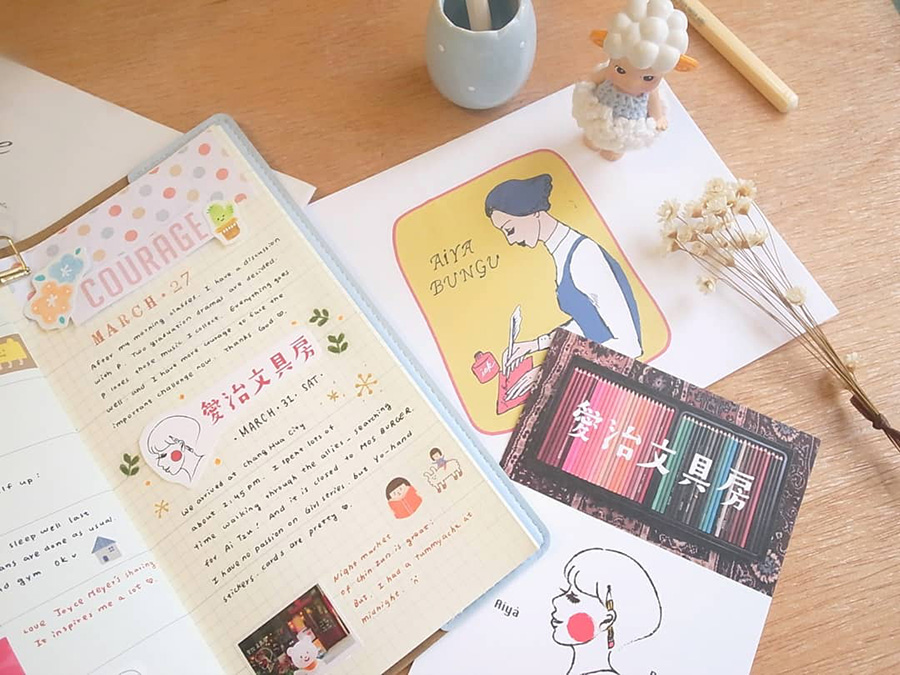 COURAGE
MARCH·27
After my morning classes, I have a discussion
with P. Two graduation dramas are decided.
P loves those music I collect. Everything goes
well, and I have more courage to face the
important challenge now. Thanks God
愛治文具房
·MARCH·31 SAT·
We arrived at Chang Hua City
about 1:45 pm. I spent lots of
time walking through the allies - searching
for Ai Tzu! And it is closed to MOS BURGER.
I have no passion on Girl series, but Yu-hand
stickers, cards are pretty.
Night market
of Chin-Zan is great!
But, I had a tummyache at
midnight.
lf up:
sleep well last
ans are done as usual
nd gym ok
Love Joyce Meyer's sharing
It inspires me a lot
AiYA
BUNGU
ink
愛治文具房
Aiyá